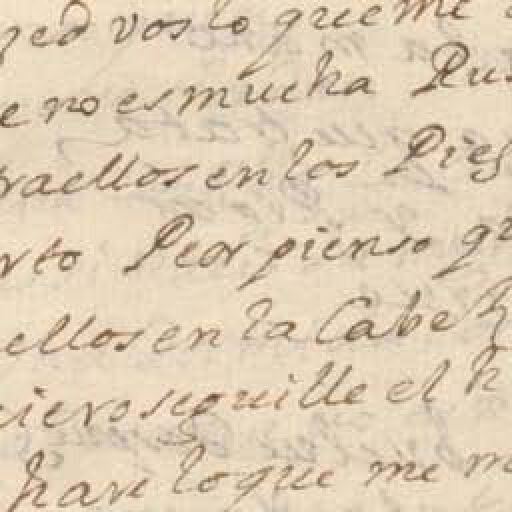 zed vos lo que me
e no es mucha Pus
raellos en los Pies
rto Peor pienso qu
ellos en la Cabez
ciero seguille el h
hare lo que me m